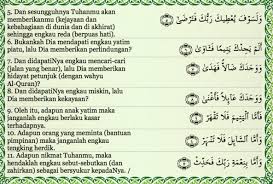 5. Dan sesungguhnya Tuhanmu akan
memberikanmu (kejayaan dan
kebahagiaan di dunia dan di akhirat)
sehingga engkau reda (berpuas hati).
6. Bukankah Dia mendapati engkau yatim
piatu, lalu Dia memberikan perlindungan?
7. Dan didapatiNya engkau mencari-cari
(jalan yang benar), lalu Dia memberikan
hidayat petunjuk (dengan wahyu
Al-Quran)?
8. Dan didapatiNya engkau miskin, lalu
Dia memberikan kekayaan?
9. Oleh itu, adapun anak yatim maka
janganlah engkau berlaku kasar
terhadapnya.
10. Adapun orang yang meminta (bantuan
pimpinan) maka janganlah engkau
tengking herdik.
11. Adapun nikmat Tuhanmu, maka
hendaklah engkau sebut-sebutkan (dan
zahirkan) sebagai bersyukur kepadaNya. /
وَلَسَوْفَ يُعْطِيكَ رَبُّكَ فَتَرْضَىٰ ٥
أَلَمْ يَجِدْكَ يَتِيمًا فَـَٔاوَىٰ ٦
وَوَجَدَكَ ضَآلًّا فَهَدَىٰ ٧
وَوَجَدَكَ عَآئِلًا فَأَغْنَىٰ ٨
فَأَمَّا ٱلْيَتِيمَ فَلَا تَقْهَرْ ٩
وَأَمَّا ٱلسَّآئِلَ فَلَا تَنْهَرْ ١٠
وَأَمَّا بِنِعْمَةِ رَبِّكَ فَحَدِّثْ ١١